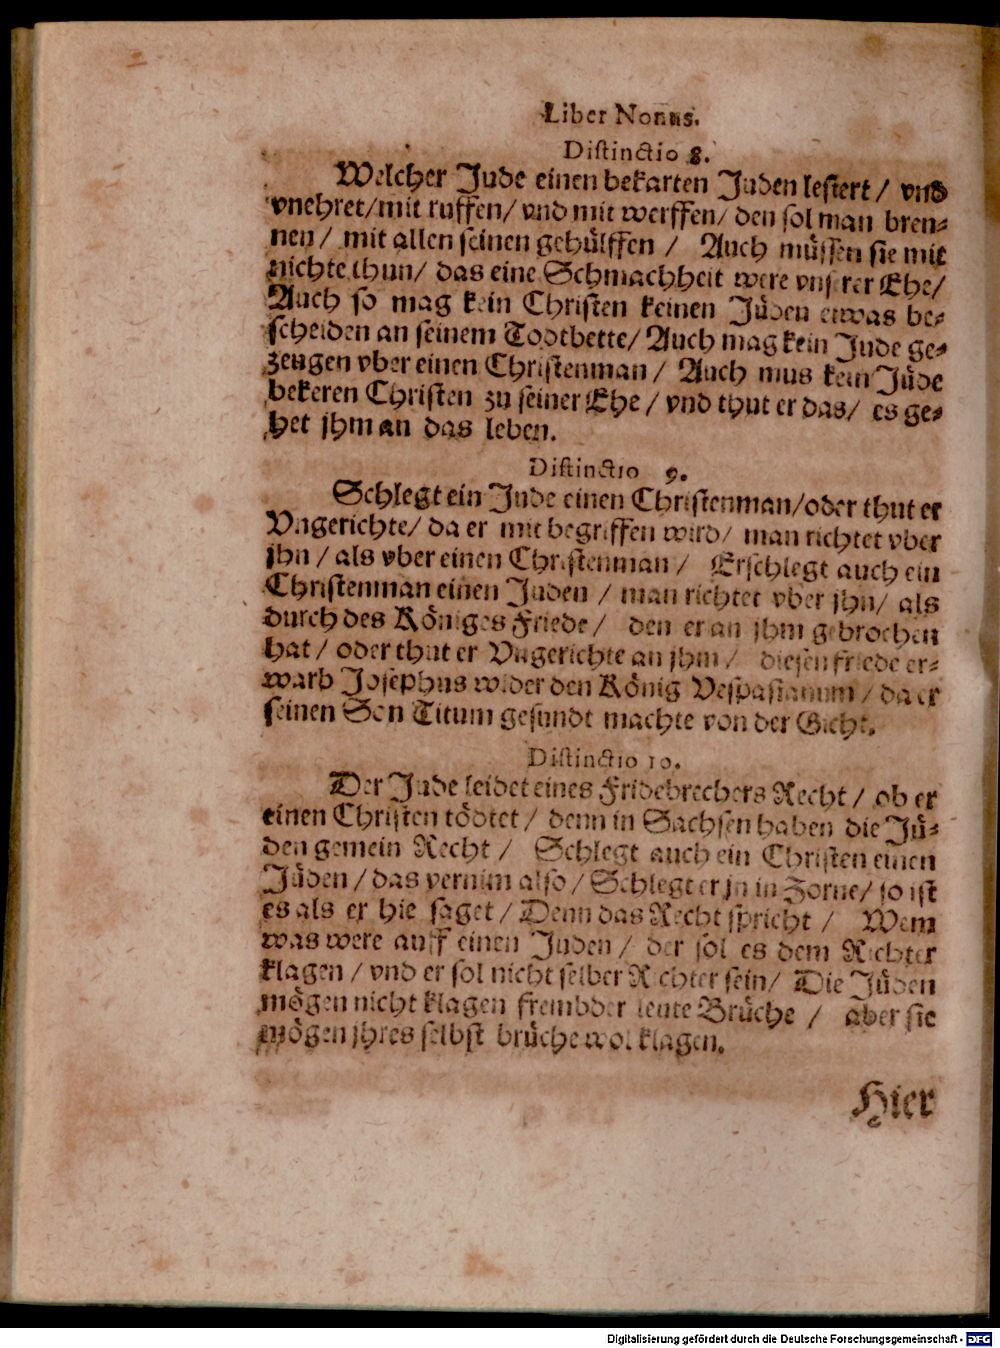 Liber Nonus.
Distinctio 8.
Welcher Jude einen bekarten Juden lestert / vnd
vnehret/mit ruffen/ vnd mit werffen/ den sol man bren-
nen / mit allen seinen gehülffen / Auch müssen sie mit
nichte thun/ das eine Schmachheit were vnserer Ehe/
Auch so mag kein Christen keinen Jüden etwas be-
scheiden an seinem Todtbette/ Auch mag kein Jude ge-
zeugen vber einen Christenman / Auch mus kein Jüde
bekeren Christen zu seiner Ehe / vnd thut er das/ es ge-
het jhm an das leben.
Distinctio 9.
Schlegt ein Jude einen Christenman/oder thut er
Vngerichte/ da er mit begriffen wird/ man richtet vber
jhn / als vber einen Christenman / Erschlegt auch ein
Christenman einen Juden / man richtet vber jhn/ als
durch des Königes Friede / den er an jhm gebrochen
hat / oder thut er Vngerichte an jhm / diesen friede er-
warb Josephus wider den König Vespasianum / da er
seinen Son Titum gesundt machte von der Gicht.
Distinctio 10.
Der Jude leidet eines Fridebrechers Recht / ob er
einen Christen tödtet / denn in Sachsen haben die Jü-
den gemein Recht / Schlegt auch ein Christen einen
Jüden / das vernim also / Schlegt er jn in Zorne/ so ist
es als er hie saget / Denn das Recht spricht / Wem
was were auff einen Juden / der sol es dem Richter
klagen / vnd er sol nicht selber Richter sein/ Die Jüden
mögen nicht klagen frembder leute Brüche / aber sie
mögen jhres selbst brüche wol klagen.
Hier
Digitalisierung gefördert durch die Deutsche Forschungsgemeinschaft - DFG